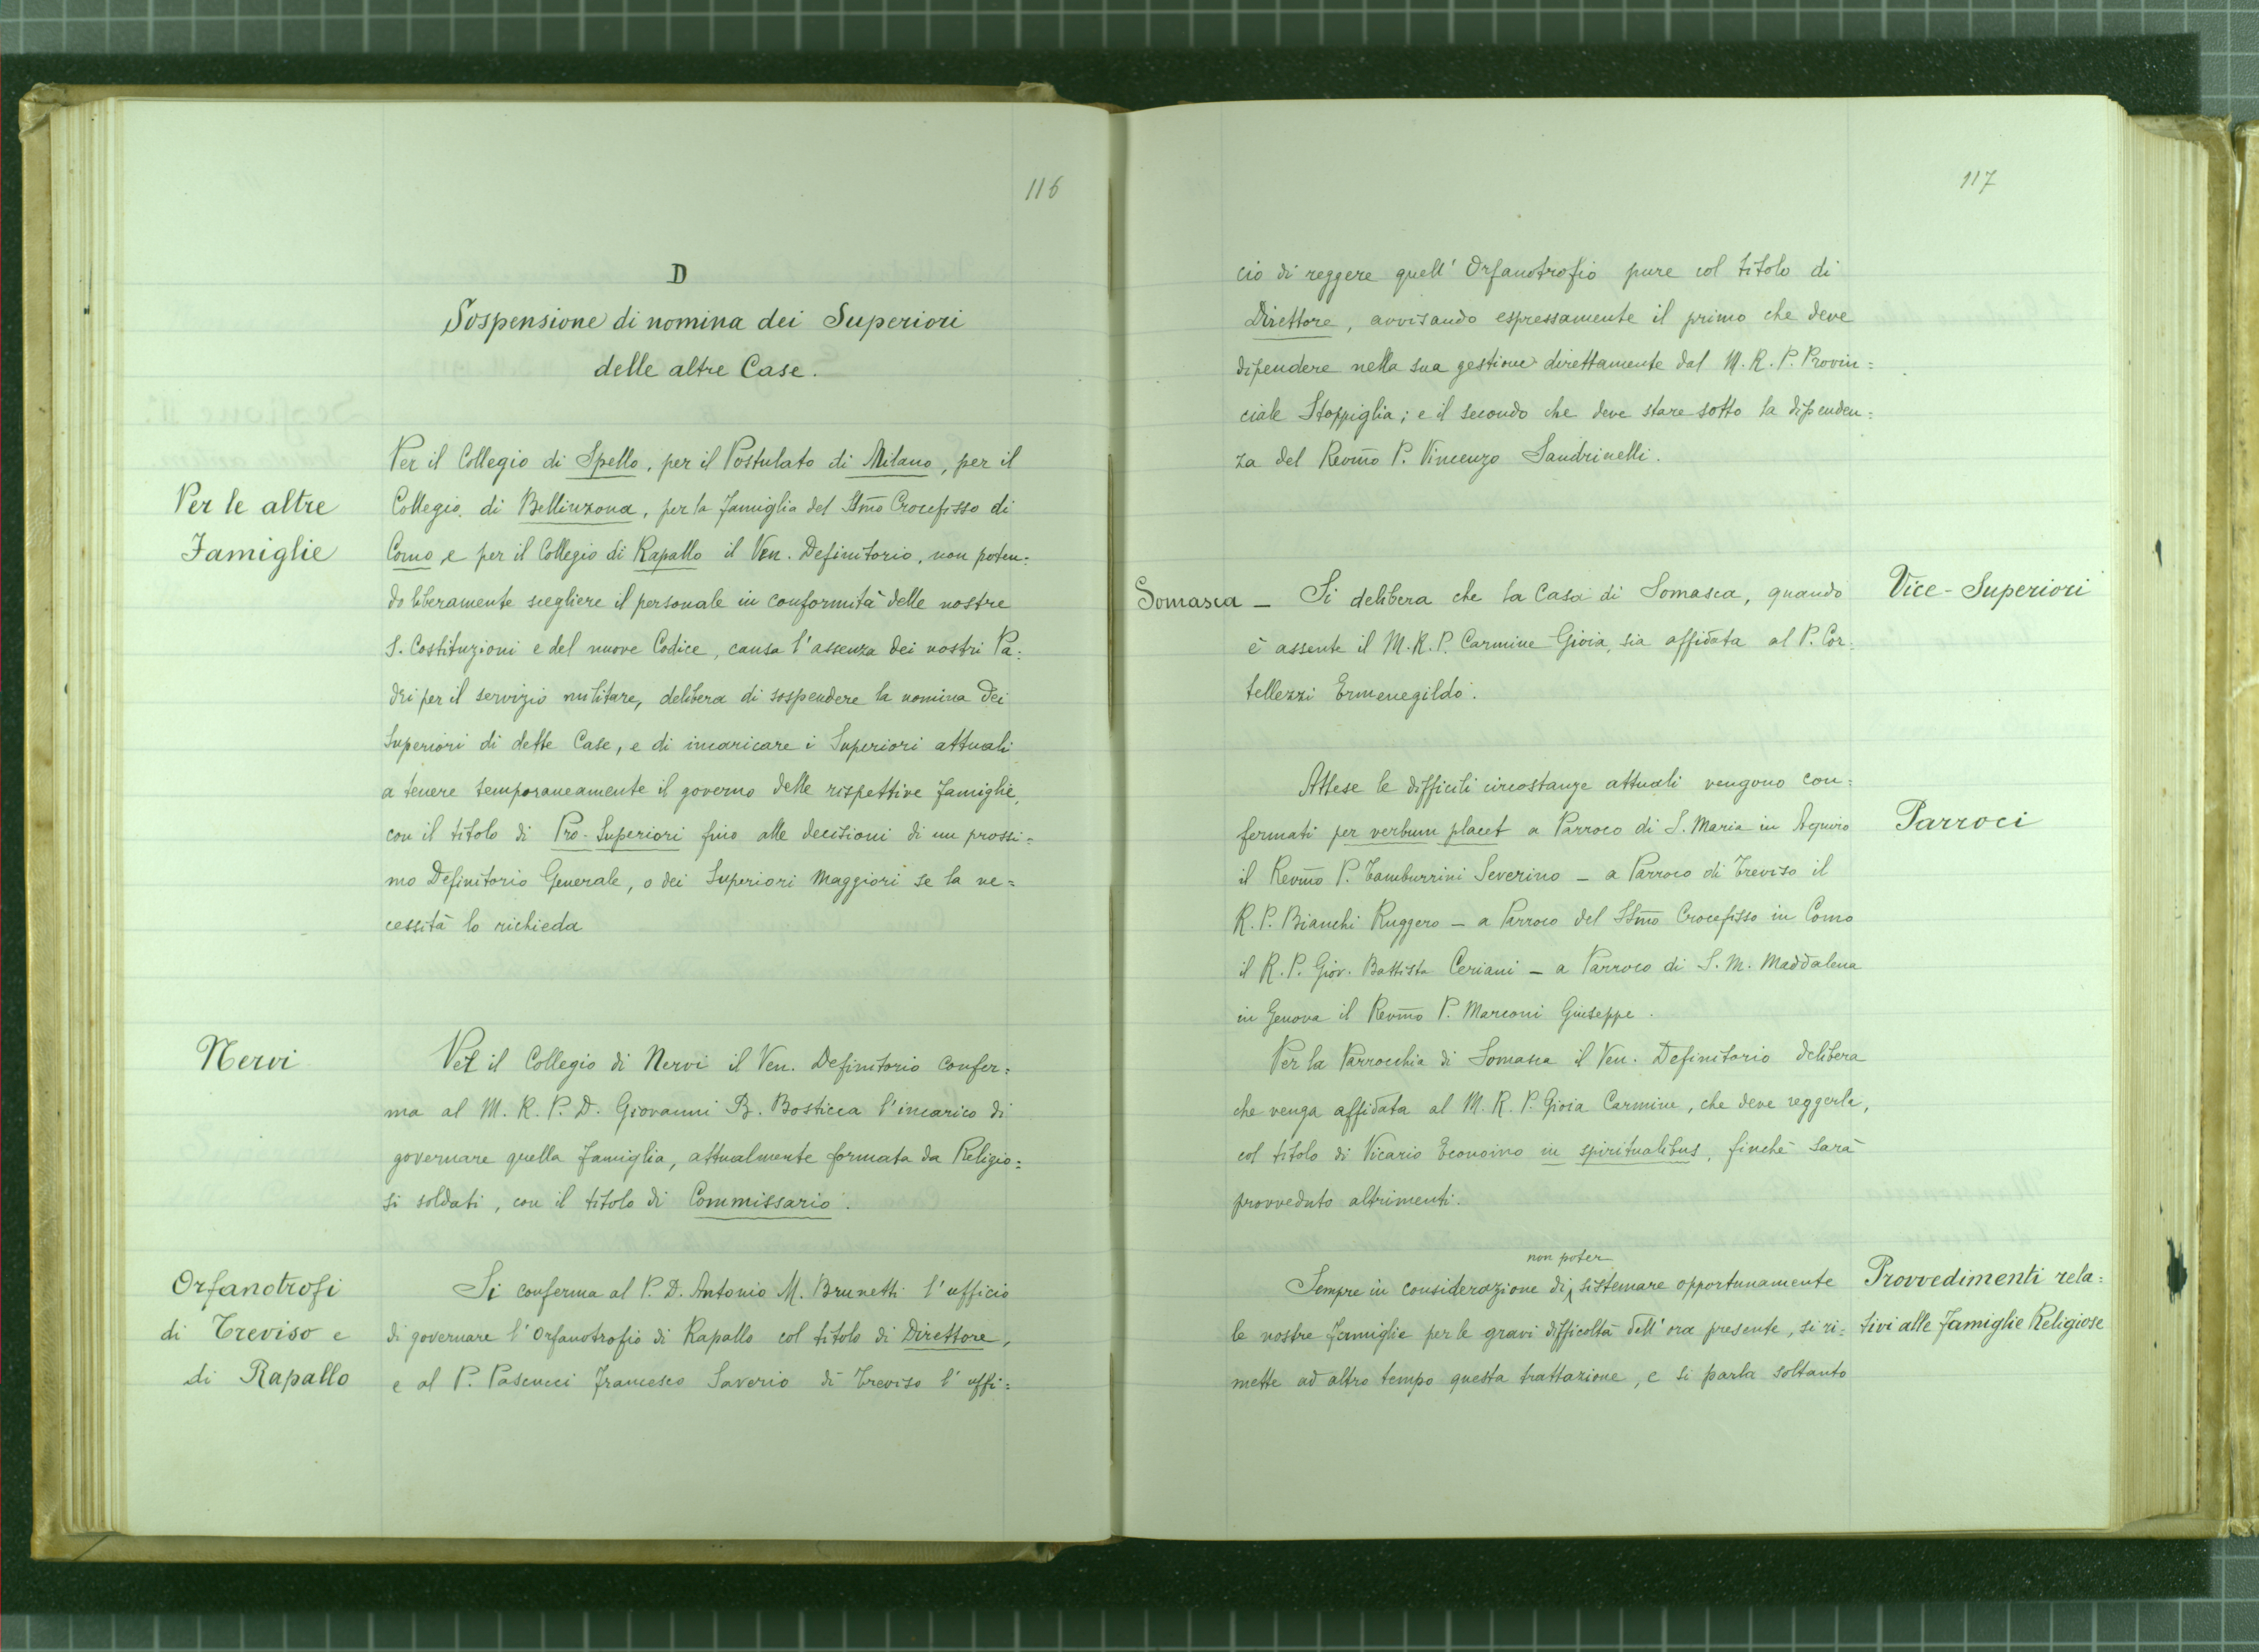 116
D
Sospensione di nomina dei Superiori
delle altre Case.
Per le altre
Famiglie
Per il Collegio di Spello, per il Postulato di Milano, per il
Collegio di Bellinzona, per la famiglia del SSmo Crocefisso di
Como e per il Collegio di Rapallo il Ven. Definitorio, non poten=
do liberamente scegliere il personale in conformità delle nostre
S. Costituzioni e del nuovo Codice, causa l'assenza dei nostri Pa=
dri per il servizio militare, delibera di sospendere la nomina dei
Superiori di dette Case, e di incaricare i Superiori attuali
a tenere temporaneamente il governo delle rispettive famiglie,
con il titolo di Pro-Superiori fino alle decisioni di un prossi=
mo Definitorio Generale, o dei Superiori Maggiori se la ne=
cessità lo richieda
Nervi
Per il Collegio di Nervi il Ven. Definitorio confer=
ma al M. R. P. D. Giovanni B. Bosticca l'incarico di
governare quella famiglia, attualmente formata da Religio=
si soldati, con il titolo di Commissario.
Orfanotrofi
di Treviso e
di Rapallo
Si conferma al P. D. Antonio M. Brunetti l'ufficio
di governare l'Orfanotrofio di Rapallo col titolo di Direttore,
e al P. Pascucci Francesco Saverio di Treviso l'uffi=
117
cio di reggere quell'Orfanotrofio pure col titolo di
Direttore, avvisando espressamente il primo che deve
dipendere nella sua gestione direttamente dal M. R. P. Provin=
ciale Stoppiglia; e il secondo che deve stare sotto la dipenden=
za del Revmo P. Vincenzo Sandrinelli.
Vice-Superiori
Somasca - Si delibera che la Casa di Somasca, quando
è assente il M. R. P. Carmine Gioia, sia affidata al P. Cor=
tellezzi Ermenegildo.
Parroci
Attese le difficili circostanze attuali vengono con=
fermati per verbum placet a Parroco di S. Maria in Aquiro
il Revmo P. Tamburrini Severino - a Parroco di Treviso il
R. P. Bianchi Ruggero - a Parroco del SSmo Crocefisso in Como
il R. P. Giov. Battista Ceriani - a Parroco di S. M. Maddalena
in Genova il Revmo P. Marconi Giuseppe.
Per la Parrocchia di Somasca il Ven. Definitorio delibera
che venga affidata al M. R. P. Gioia Carmine, che deve reggerla,
col titolo di Vicario Economo in spiritualibus, finchè sarà
provveduto altrimenti.
Provvedimenti rela=
tivi alle famiglie Religiose
non poter
Sempre in considerazione di sistemare opportunamente
le nostre famiglie per le gravi difficoltà dell'ora presente, si ri=
mette ad altro tempo questa trattazione, e si parla soltanto